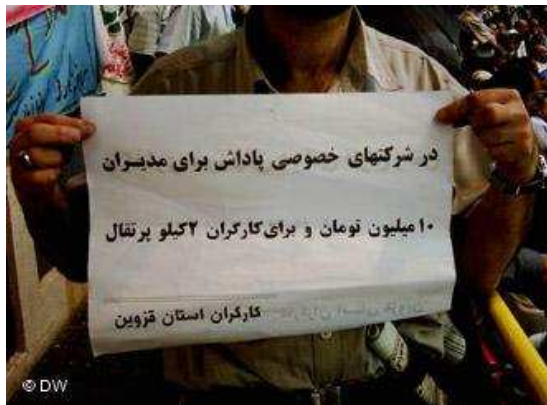 در شرکتهای خصوصی پاداش برای مدیــران
۱۰ میلیون تومان و برای کارگران ۲کیلو پرتقال
کارگران استان قزوین
© DW